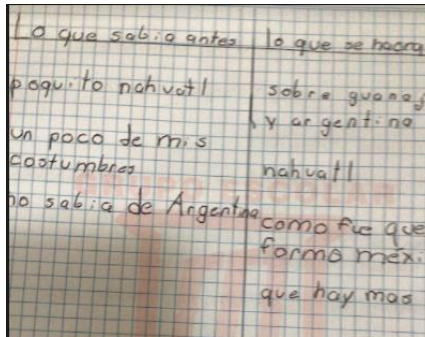 Lo que sabia antes
poquito nahuatl
un poco de mis
costumbres
no sabia de Argentina
lo que se haora
sobre guana
y argentina
nahuatl
como fue que
formo mexi
que hay mas